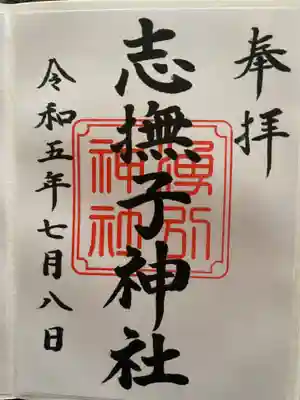 奉拝
志撫子神社
湧別神社
令和五年七月八日